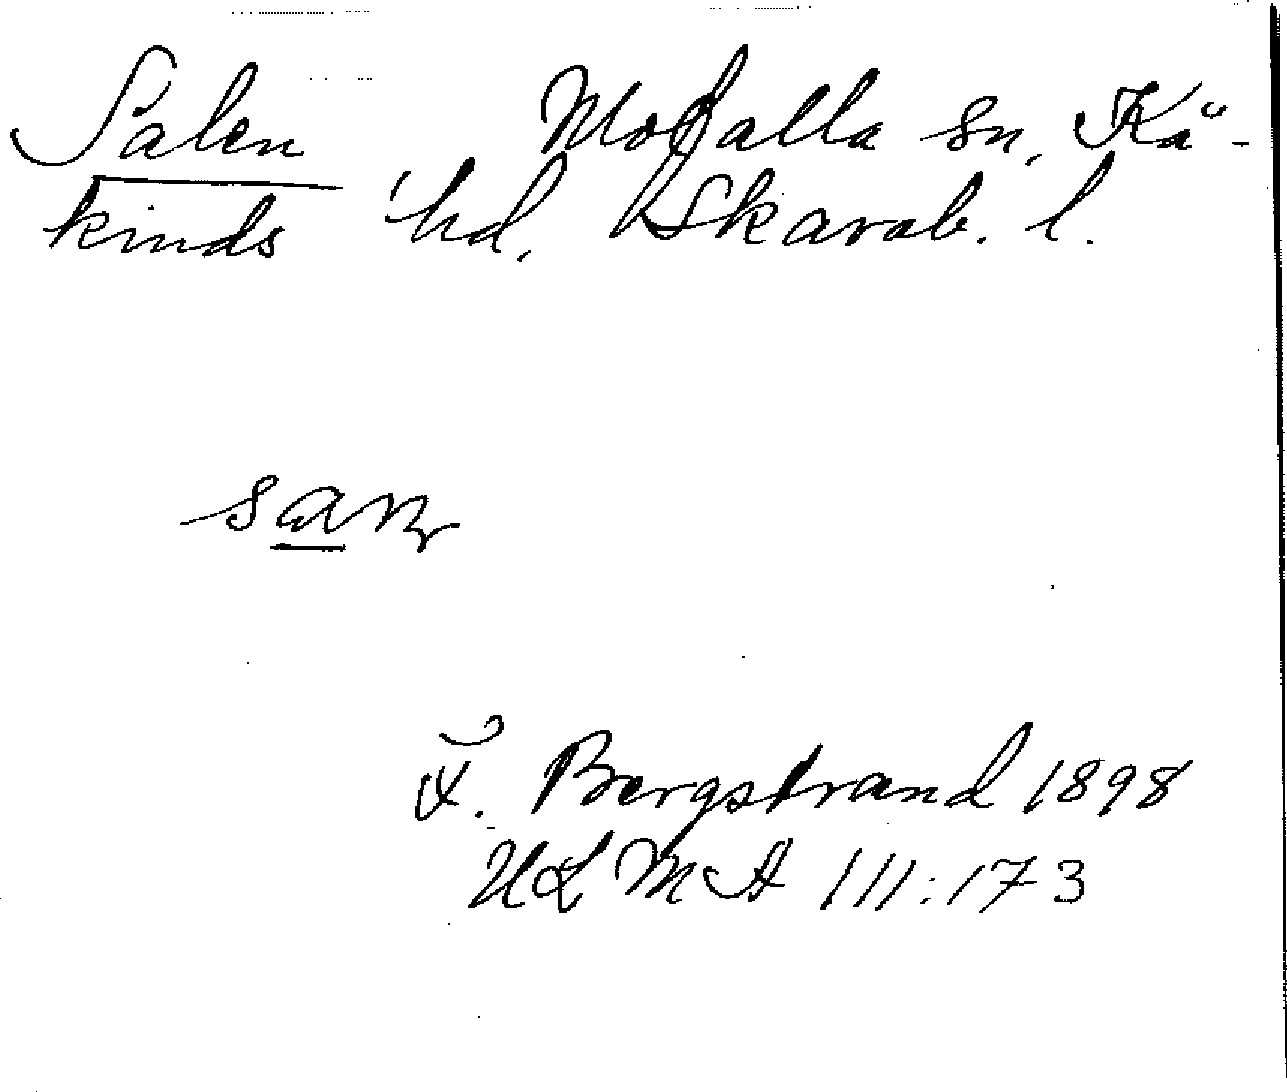 Salen Mofalla sn, Kå-
kinds hd, Skarab. l.
F. Bergstrand 1898
ULMA 111:173